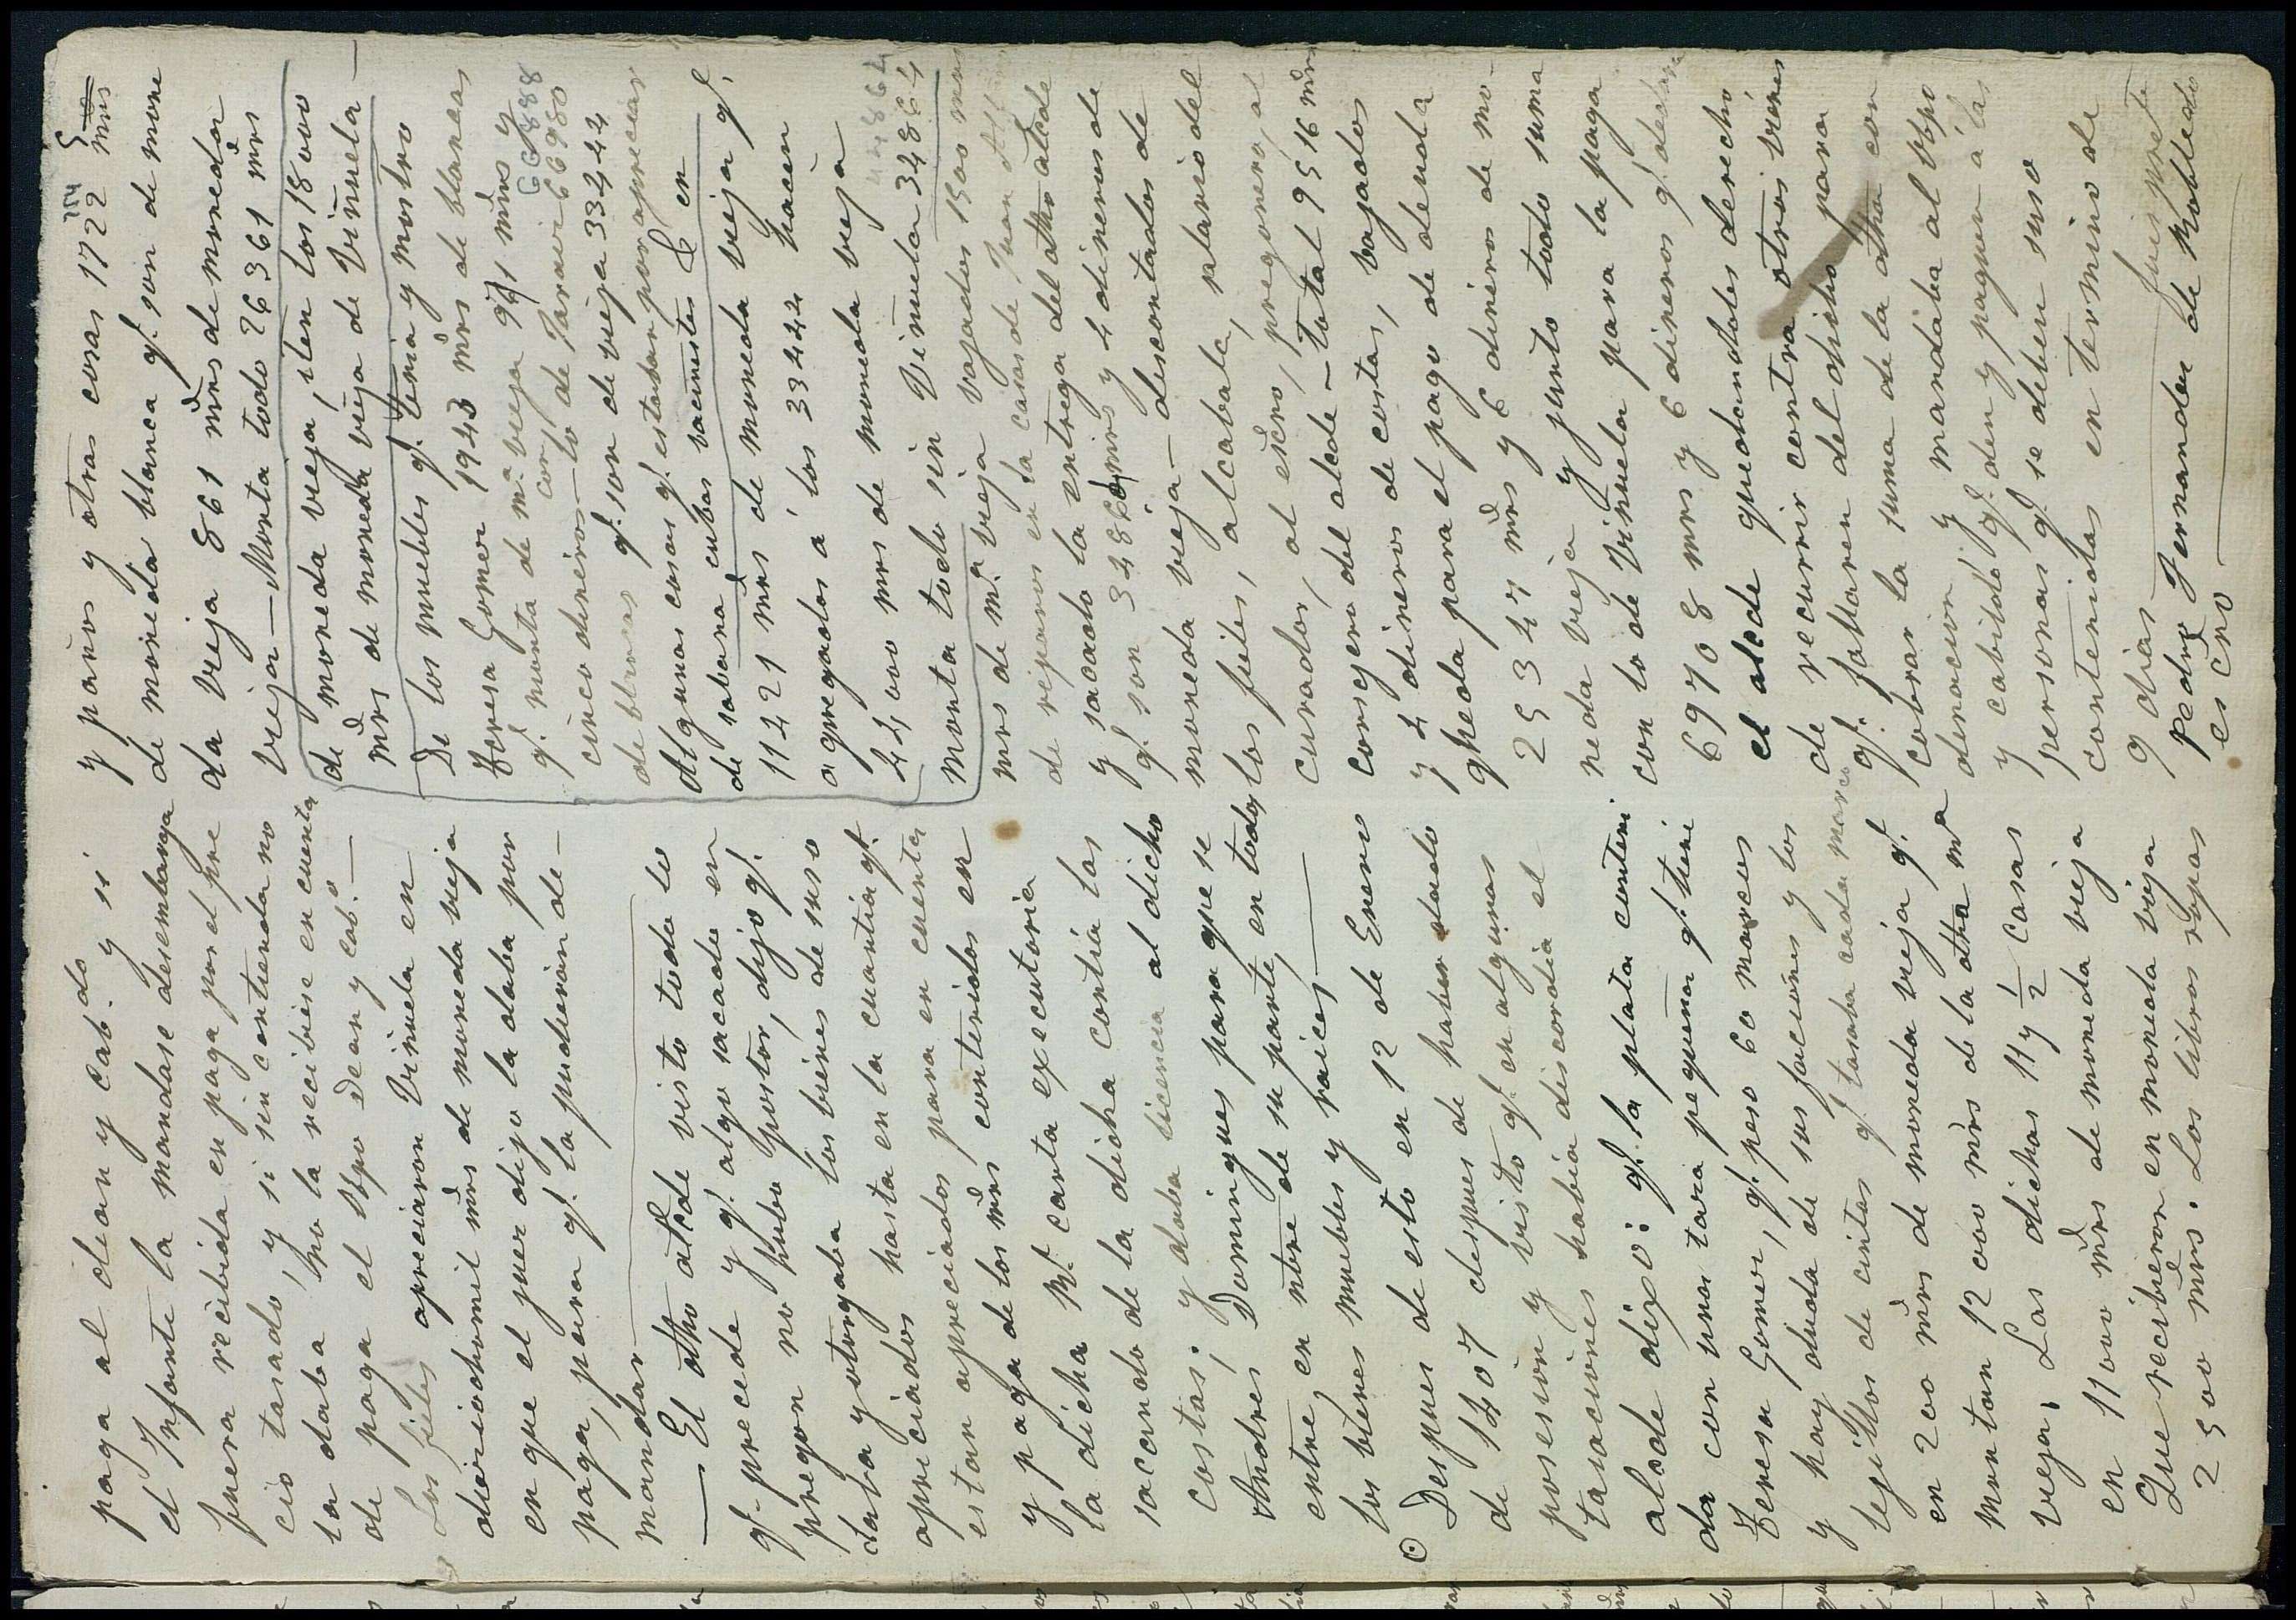 paga al dean y cab.do y si
el Infante la mandase desembarga
fuera recibida en paga por el pre
cio tasado, y si sin contienda no
la daba no la recibiese en cuenta
de paga el Obpo Dean y cab.o —
Los fieles apreciaron Viñuela en
dieziochomil mrs de moneda vieja
en que el juez dijo la daba por
paga, para q.e la pudieran de—
mandar
— El dho alcde visto todo lo
q.e precede y q.e algo sacado en
pregon no hubo postor, dijo q.e
daba y otorgaba los bienes de suso
apreciados hasta en la cuantia q.e
estan apreciados para en cuenta
y paga de los mrs contenidos en
la dicha N.l carta executoria
sacando de la dicha contia las
costas; y daba licencia al dicho
Andrés Domingues para que se
entre, en nbre de su parte, en todos
los bienes muebles y raices —
⊙ Despues de esto en 12 de Enero
de 1407 despues de haber dado
posesion y visto q.e en algunas
tasaciones habia discordia el
alcde dixo: q.e la plata conteni
da con una tara pequeña q.e tieni
Teresa Gomez, q.e peso 60 marcos
y hay duda de sus faciones y los
tejillos de cintas q.e tasaba cada marco
en 200 mrs de moneda vieja q.e
montan 12000 mrs de la dha m.a
vieja. Las dichas 11 y ½ casas
en 11000 mrs de moneda vieja
Que recibieron en moneda vieja
2500 mrs. Los libros ropas
y paños y otras cosas 1722 mrs
de moneda blanca q.e son de mone
da vieja 861 mrs de moneda
vieja — Monta todo 26361 mrs
de moneda vieja, iten los 18000
mrs de moneda vieja de Viñuela —
De los muebles q.e tenia y mostro
Teresa Gomez 1943 mrs de blancas
q.e monta de m.a vieja 971 mrs y
cinco dineros — con lo de 66980
de blancas q.e son de vieja 33444
Algunas cosas q.e estaban por apreciar
de sabana cubas bacinetes & en
11421 mrs de moneda vieja q.e
agregados a los 33444 hacen
44000 mrs de moneda vieja
monta todo sin Viñuela 34864
mrs de m.a vieja bajados 1500 mrs
de reparos en la casas de Juan
y sacado la entrega del dho alcde
q.e son 3486 mrs y 4 dineros de
moneda vieja — descontados de
los fieles, alcabala, salario del
curador, al escno, pregonero, al
consejero del alcde — total 9516 mrs
y 4 dineros de costas, bajados
queda para el pago de deuda
25347 mrs y 6 dineros de mo—
neda vieja y junto todo suma
con lo de Viñuela para la paga
69708 mrs y 6 dineros q.e declara
el alcde quedandoles derecho
de recurrir contra otros bienes
q.e fallaren del dicho para
cobrar la suma de la dha con
denacion y mandaba al Obpo
y cabildo q.e den y paguen a las
personas q.e se deben suso
contenidas en termino de
9 dias — fui prete
Pedro Fernandez de Robledo
escno